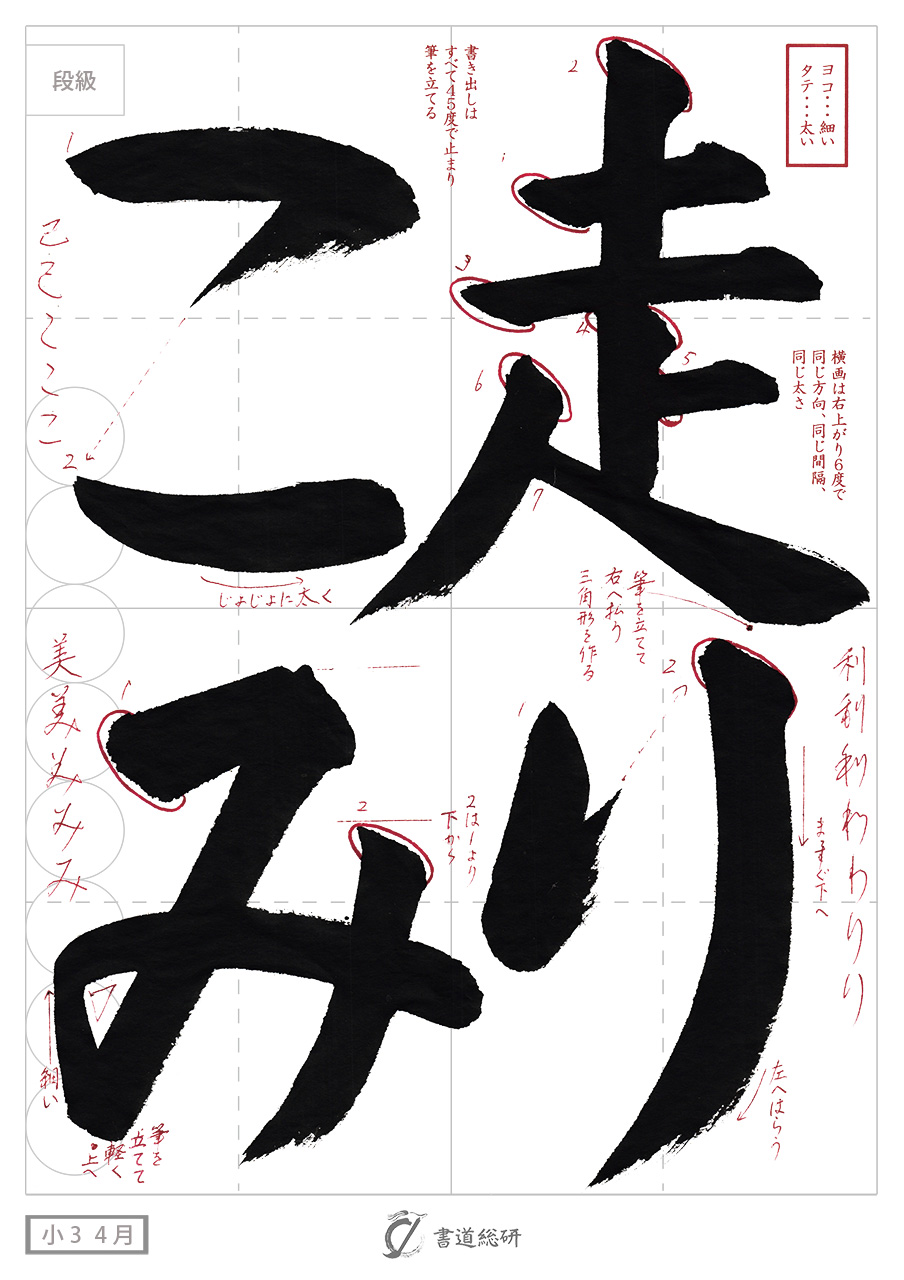 走り
こみ
ヨコ・・・細い
タテ・・・太い
書き出しは
すべて45度で止まり
筆を立てる
横画は右上がり6度で
同じ方向、同じ間隔、
同じ太さ
段級
1
2
3
4
5
6
7
筆を立てて
右へ払う
三角形を作る
利
利
利
わ
わ
り
り
1
2
まっすぐ下へ
左へはらう
己
己
こ
こ
こ
1
2
じょじょに太く
美
美
み
み
み
1
2
2は1より
下から
細い
筆を
立てて
軽く
上へ
小3 4月
書道総研